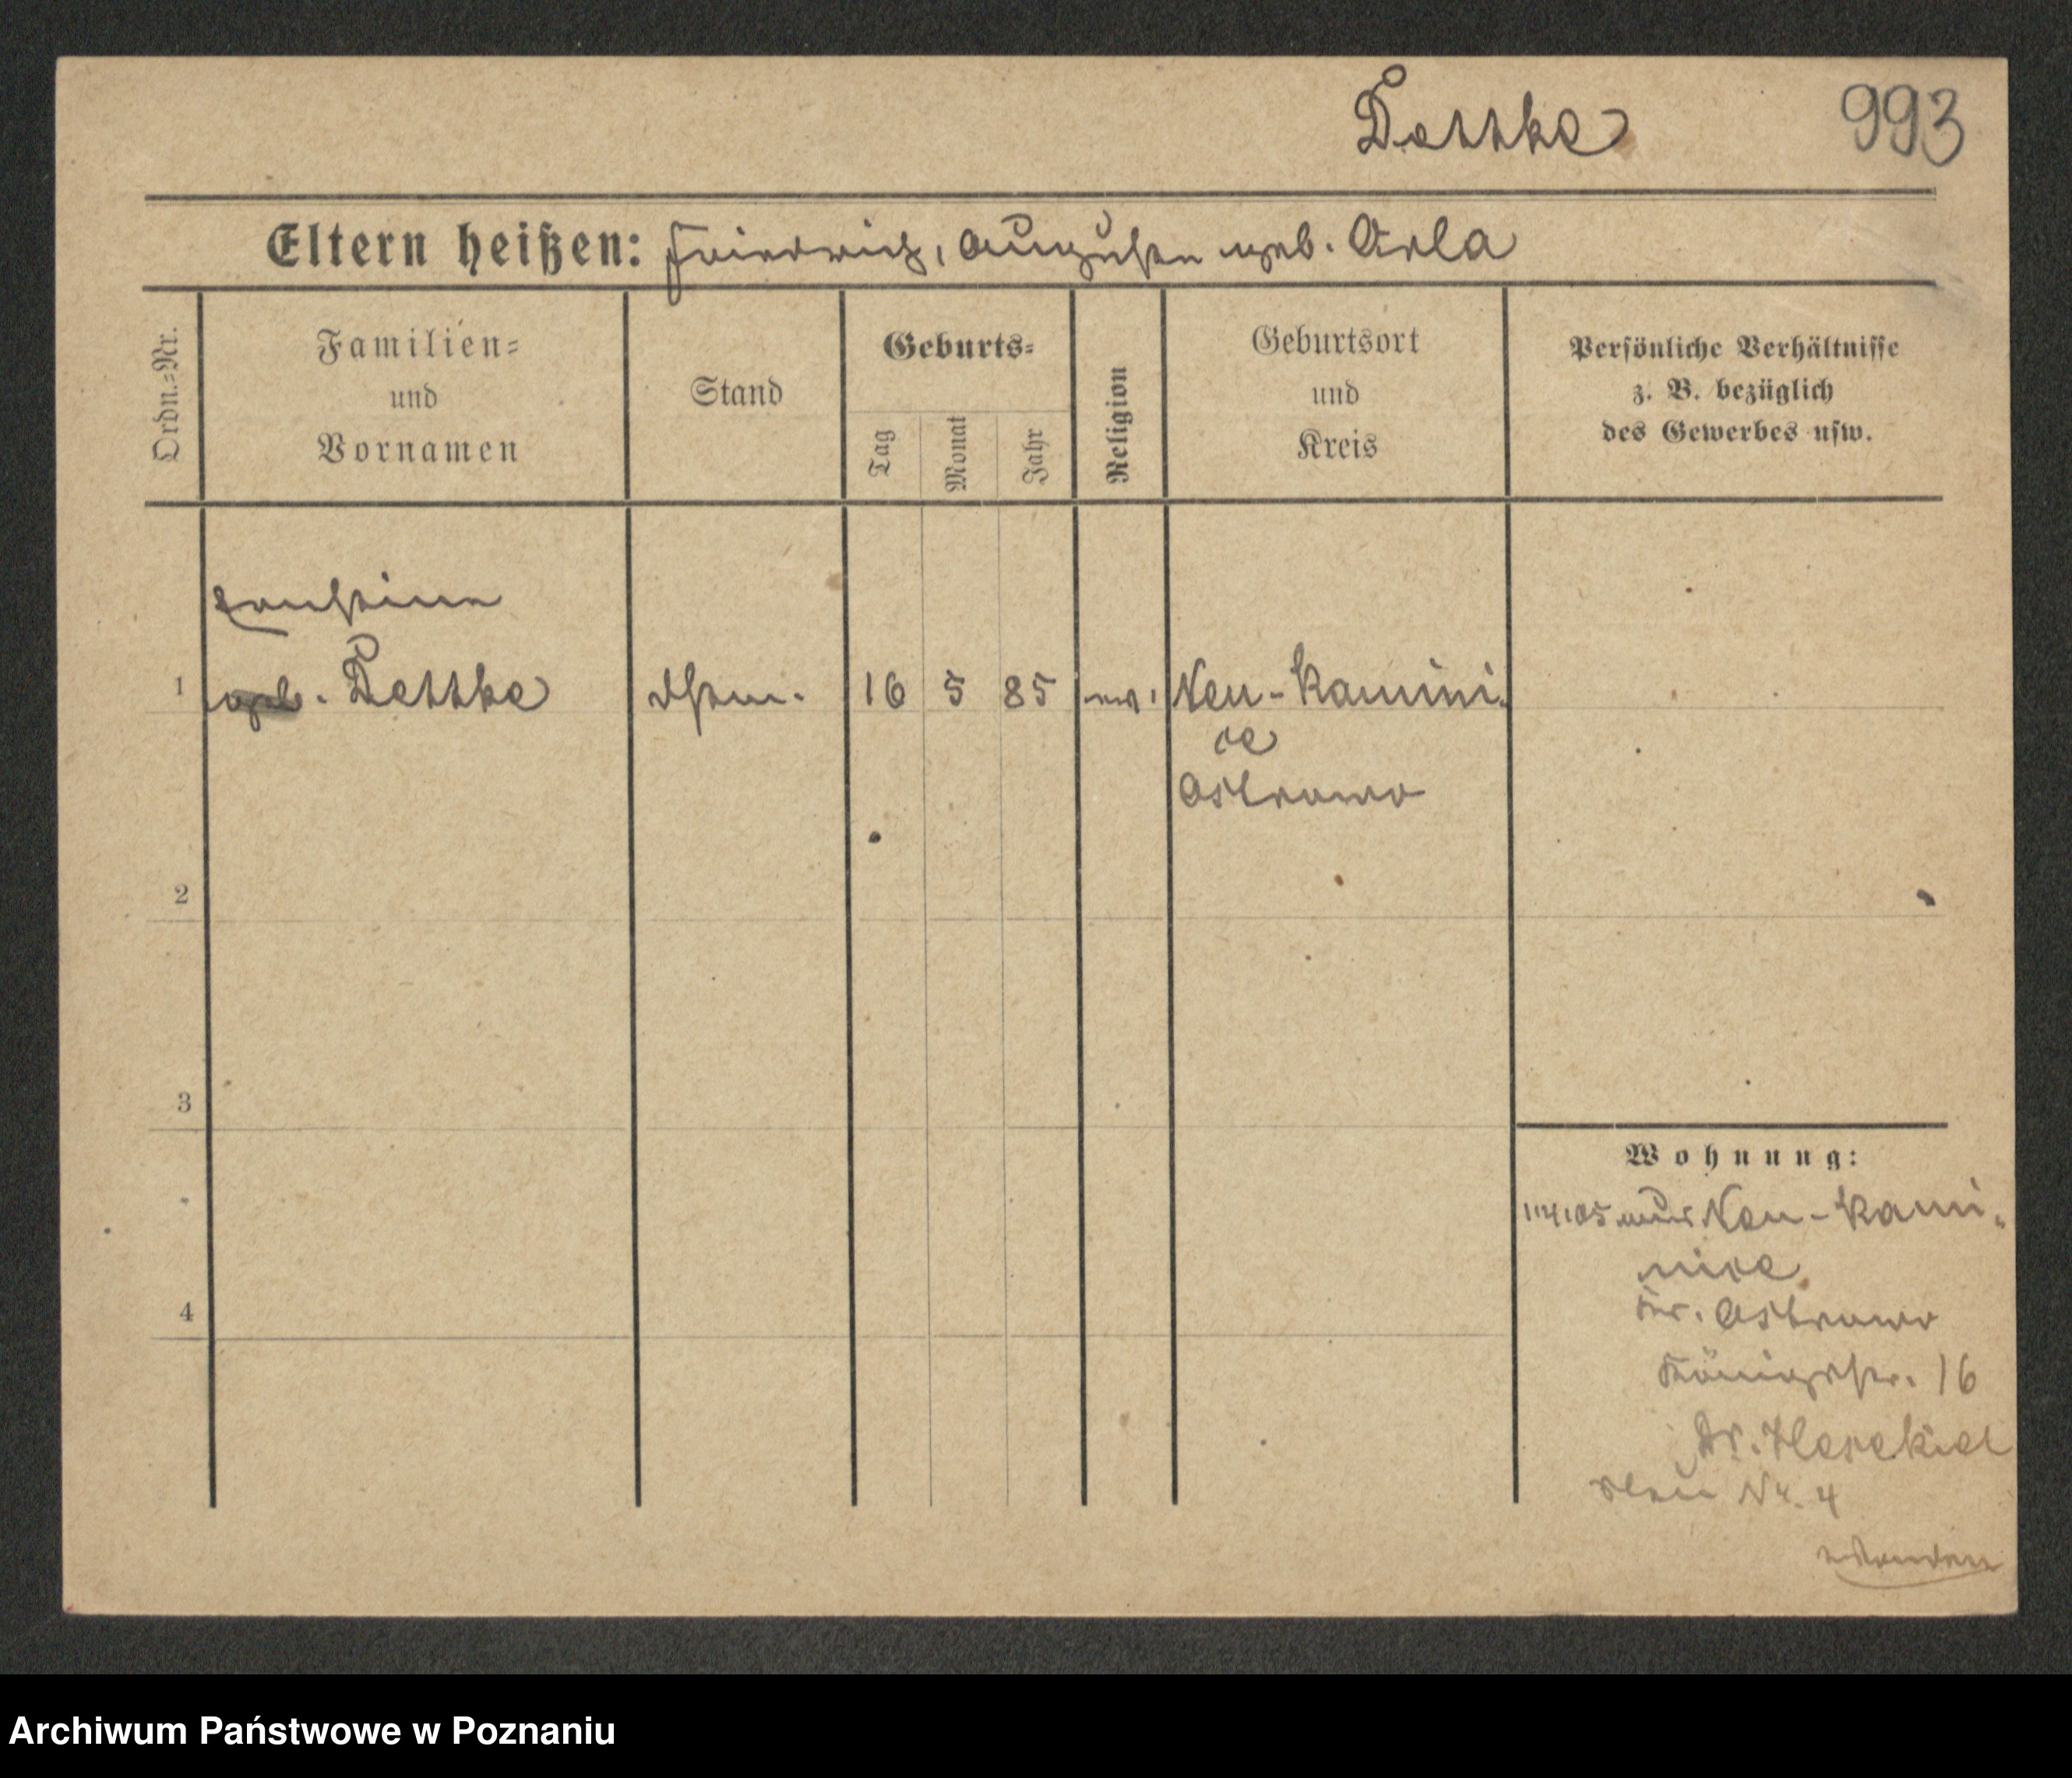 Dettke 993
Eltern heißen: Friedrich, Auguste geb. Arlt
Ordn.=Nr.
Familien=
und
Vornamen
Stand
Geburts=
Tag
Monat
Jahr
Religion
Geburtsort
und
Kreis
Persönliche Verhältnisse
z. B. bezüglich
des Gewerbes usw.
Ernstine
1 geb. Dettke 16 5 85 ev. Neu-Kamini
ce
Ostrowo
2
3
4
Wohnung:
1/4/05 aus Neu-Kami-
nice
Kr. Ostrowo
Königstr. 16
Dr. Hesekiel
Nr. 4
wenden
Archiwum Państwowe w Poznaniu